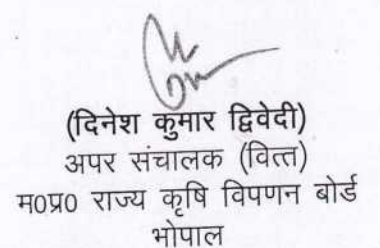 (दिनेश कुमार द्विवेदी)
अपर संचालक (वित्त)
म0प्र0 राज्य कृषि विपणन बोर्ड
भोपाल